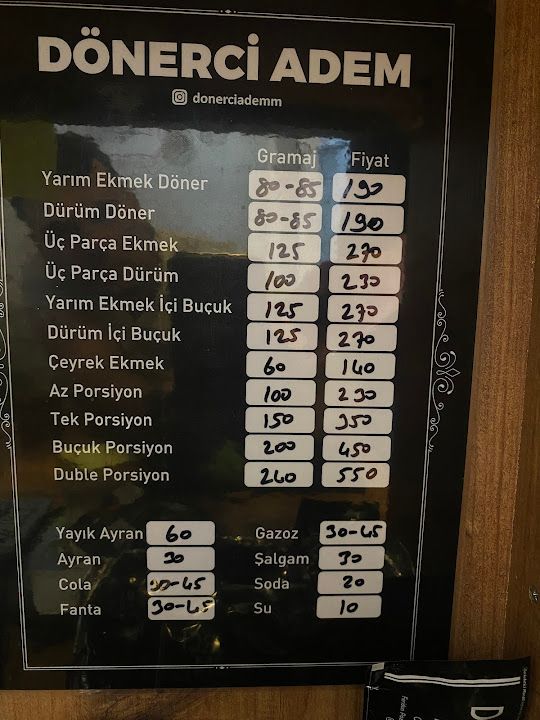 DÖNERCİ ADEM
donerciademm
Gramaj Fiyat
Yarım Ekmek Döner 80-85 190
Dürüm Döner 80-85 190
Üç Parça Ekmek 125 270
Üç Parça Dürüm 100 230
Yarım Ekmek İçi Buçuk 125 270
Dürüm İçi Buçuk 125 270
Çeyrek Ekmek 60 140
Az Porsiyon 100 230
Tek Porsiyon 150 350
Buçuk Porsiyon 200 450
Duble Porsiyon 240 550
Yayık Ayran 60 Gazoz 30-45
Ayran 30 Şalgam 30
Cola 30-45 Soda 20
Fanta 30-45 Su 10